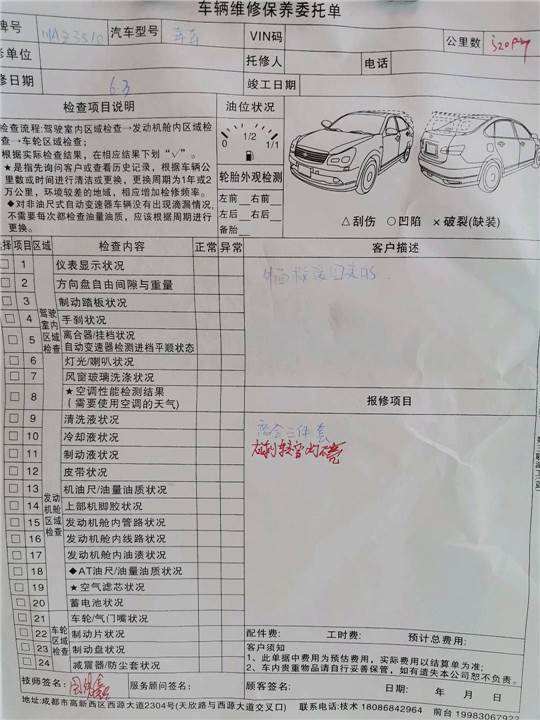 车辆维修保养委托单
牌号 汽车型号 VIN码 公里数
单位 托修人 电话
修日期 6.3 竣工日期
检查项目说明 油位状况
检查流程:驾驶室内区域检查→发动机舱内区域检
查→车轮区域检查;
根据实际检查结果,在相应结果下划“√”。
★是指先询问客户或查看历史记录,根据车辆公
里数或时间进行清洁或更换,更换周期为1年或2
万公里,环境较差的地域,相应增加检修频率。
◆对非油尺式自动变速器车辆没有出现滴漏情况,
不需要每次都检查油量油质,应该根据周期进行
更换。
0 1/2 1/1
轮胎外观检测
左前 右前
左后 右后
备胎
△刮伤 ○凹陷 ×破裂(缺装)
择 项目 区域 检查内容 正常 异常 客户描述
驾驶室内区域检查
1 仪表显示状况
2 方向盘自由间隙与重量
3 制动踏板状况
4 手刹状况
5 离合器/挂档状况
自动变速器检测进档平顺状态
6 灯光/喇叭状况
7 风窗玻璃洗涤状况
8 ★空调性能检测结果
(需要使用空调的天气)
报修项目
离合三件套
发动机舱区域检查
9 清洗液状况
10 冷却液状况
11 制动液状况
12 皮带状况
13 机油尺/油量油质状况
14 上部机脚胶状况
15 发动机舱内管路状况
16 发动机舱内线路状况
17 发动机舱内油渍状况
18 ◆AT油尺/油量油质状况
19 ★空气滤芯状况
20 蓄电池状况
车轮区域检查
21 车轮/气门嘴状况
22 制动片状况
23 制动盘状况
24 减震器/防尘套状况
配件费: 工时费: 预计总费用:
客户须知
1、此单据中费用为预估费用,实际费用以结算单为准;
2、车内贵重物品请自行妥善保管,如有遗失本公司恕不负责。
技师签名: 服务顾问签名: 顾客签名: 日期: 年 月 日
地址:成都市高新西区西源大道2304号(天欣路与西源大道交叉口) 联系电话:技术 18086842964 前台 19983067922